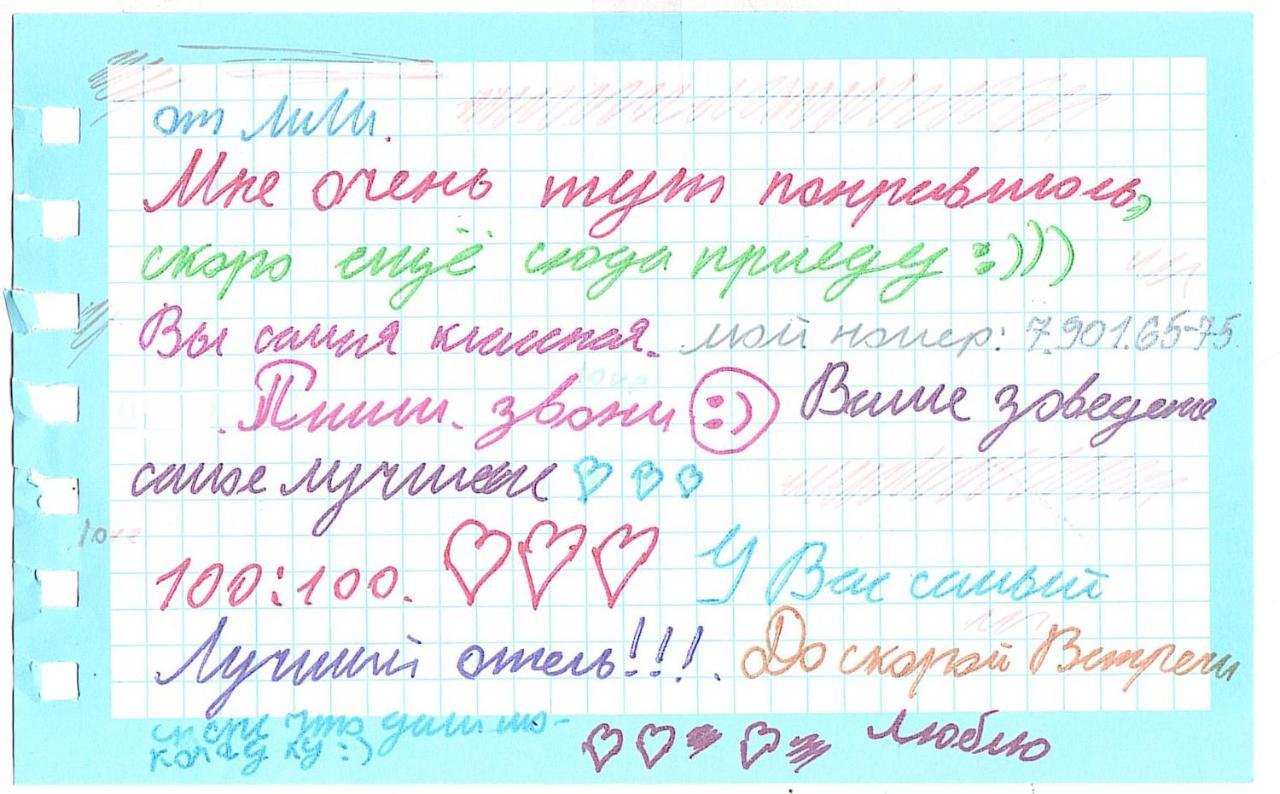 от Лили.
Мне очень тут понравилось,
скоро ещё сюда приеду :)))
Вы самая классная. мой номер: 7.901.65-75
Пиши. звони :) Ваше заведение
самое лучшее
love
100:100. У Вас самый
Лучший отель!!!. До скорой Встречи
что дали шо-
коладку :) Люблю